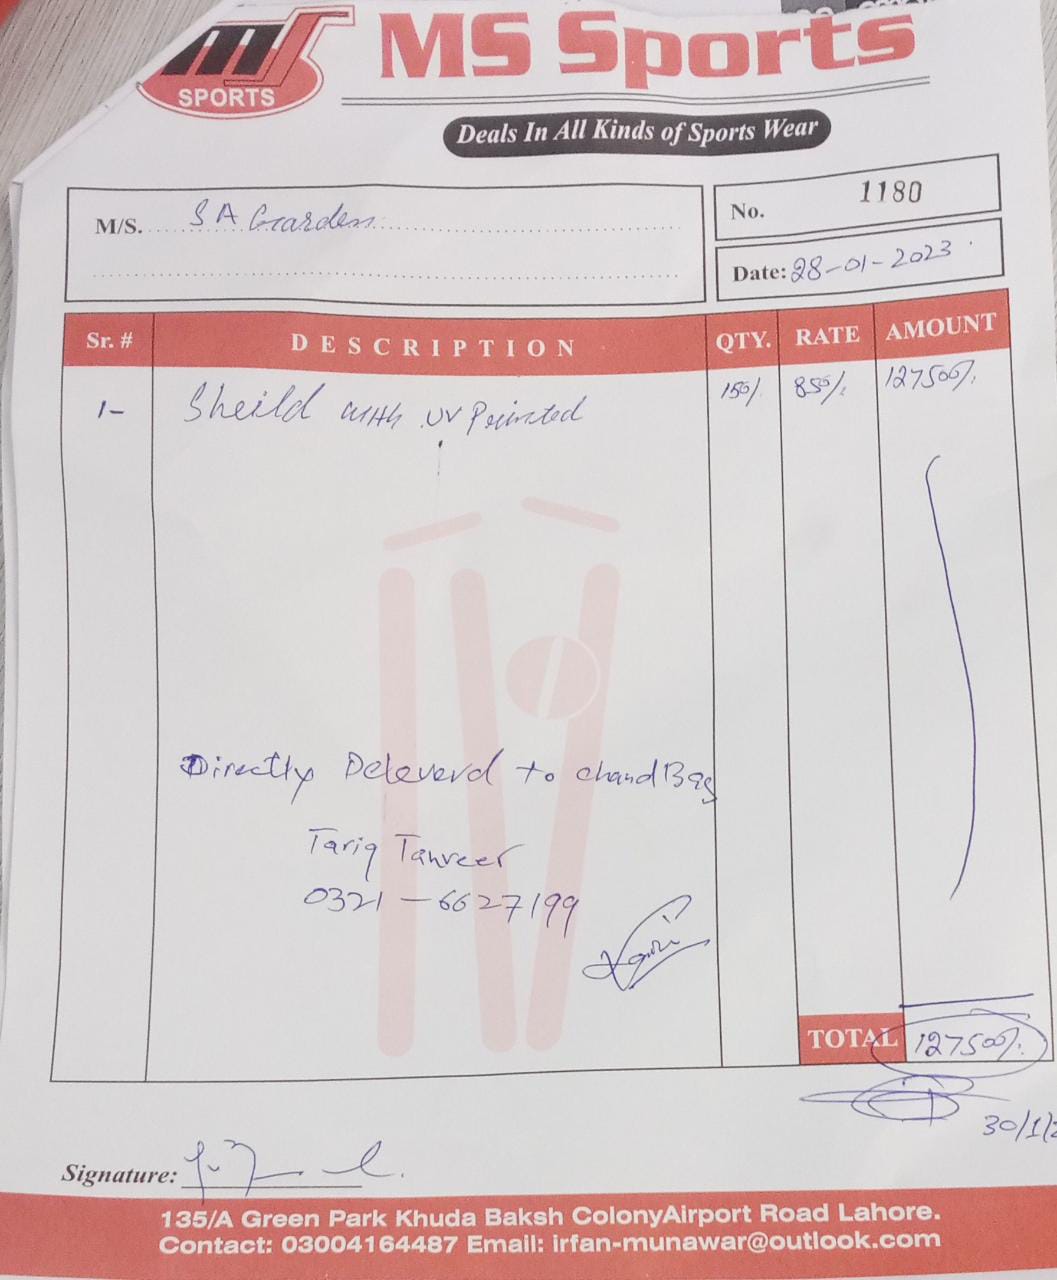 MS
SPORTS
MS Sports
Deals In All Kinds of Sports Wear
M/S. S A Garden
No. 1180
Date: 28-01-2023
Sr. # DESCRIPTION QTY. RATE AMOUNT
1- Sheild with UV Printed 150/. 850/. 127500/.
Directly Deleverd to chand Bag
Tariq Tanveer
0321-6627199
TOTAL 127500/.
30/1/2
Signature:
135/A Green Park Khuda Baksh ColonyAirport Road Lahore.
Contact: 03004164487 Email: irfan-munawar@outlook.com